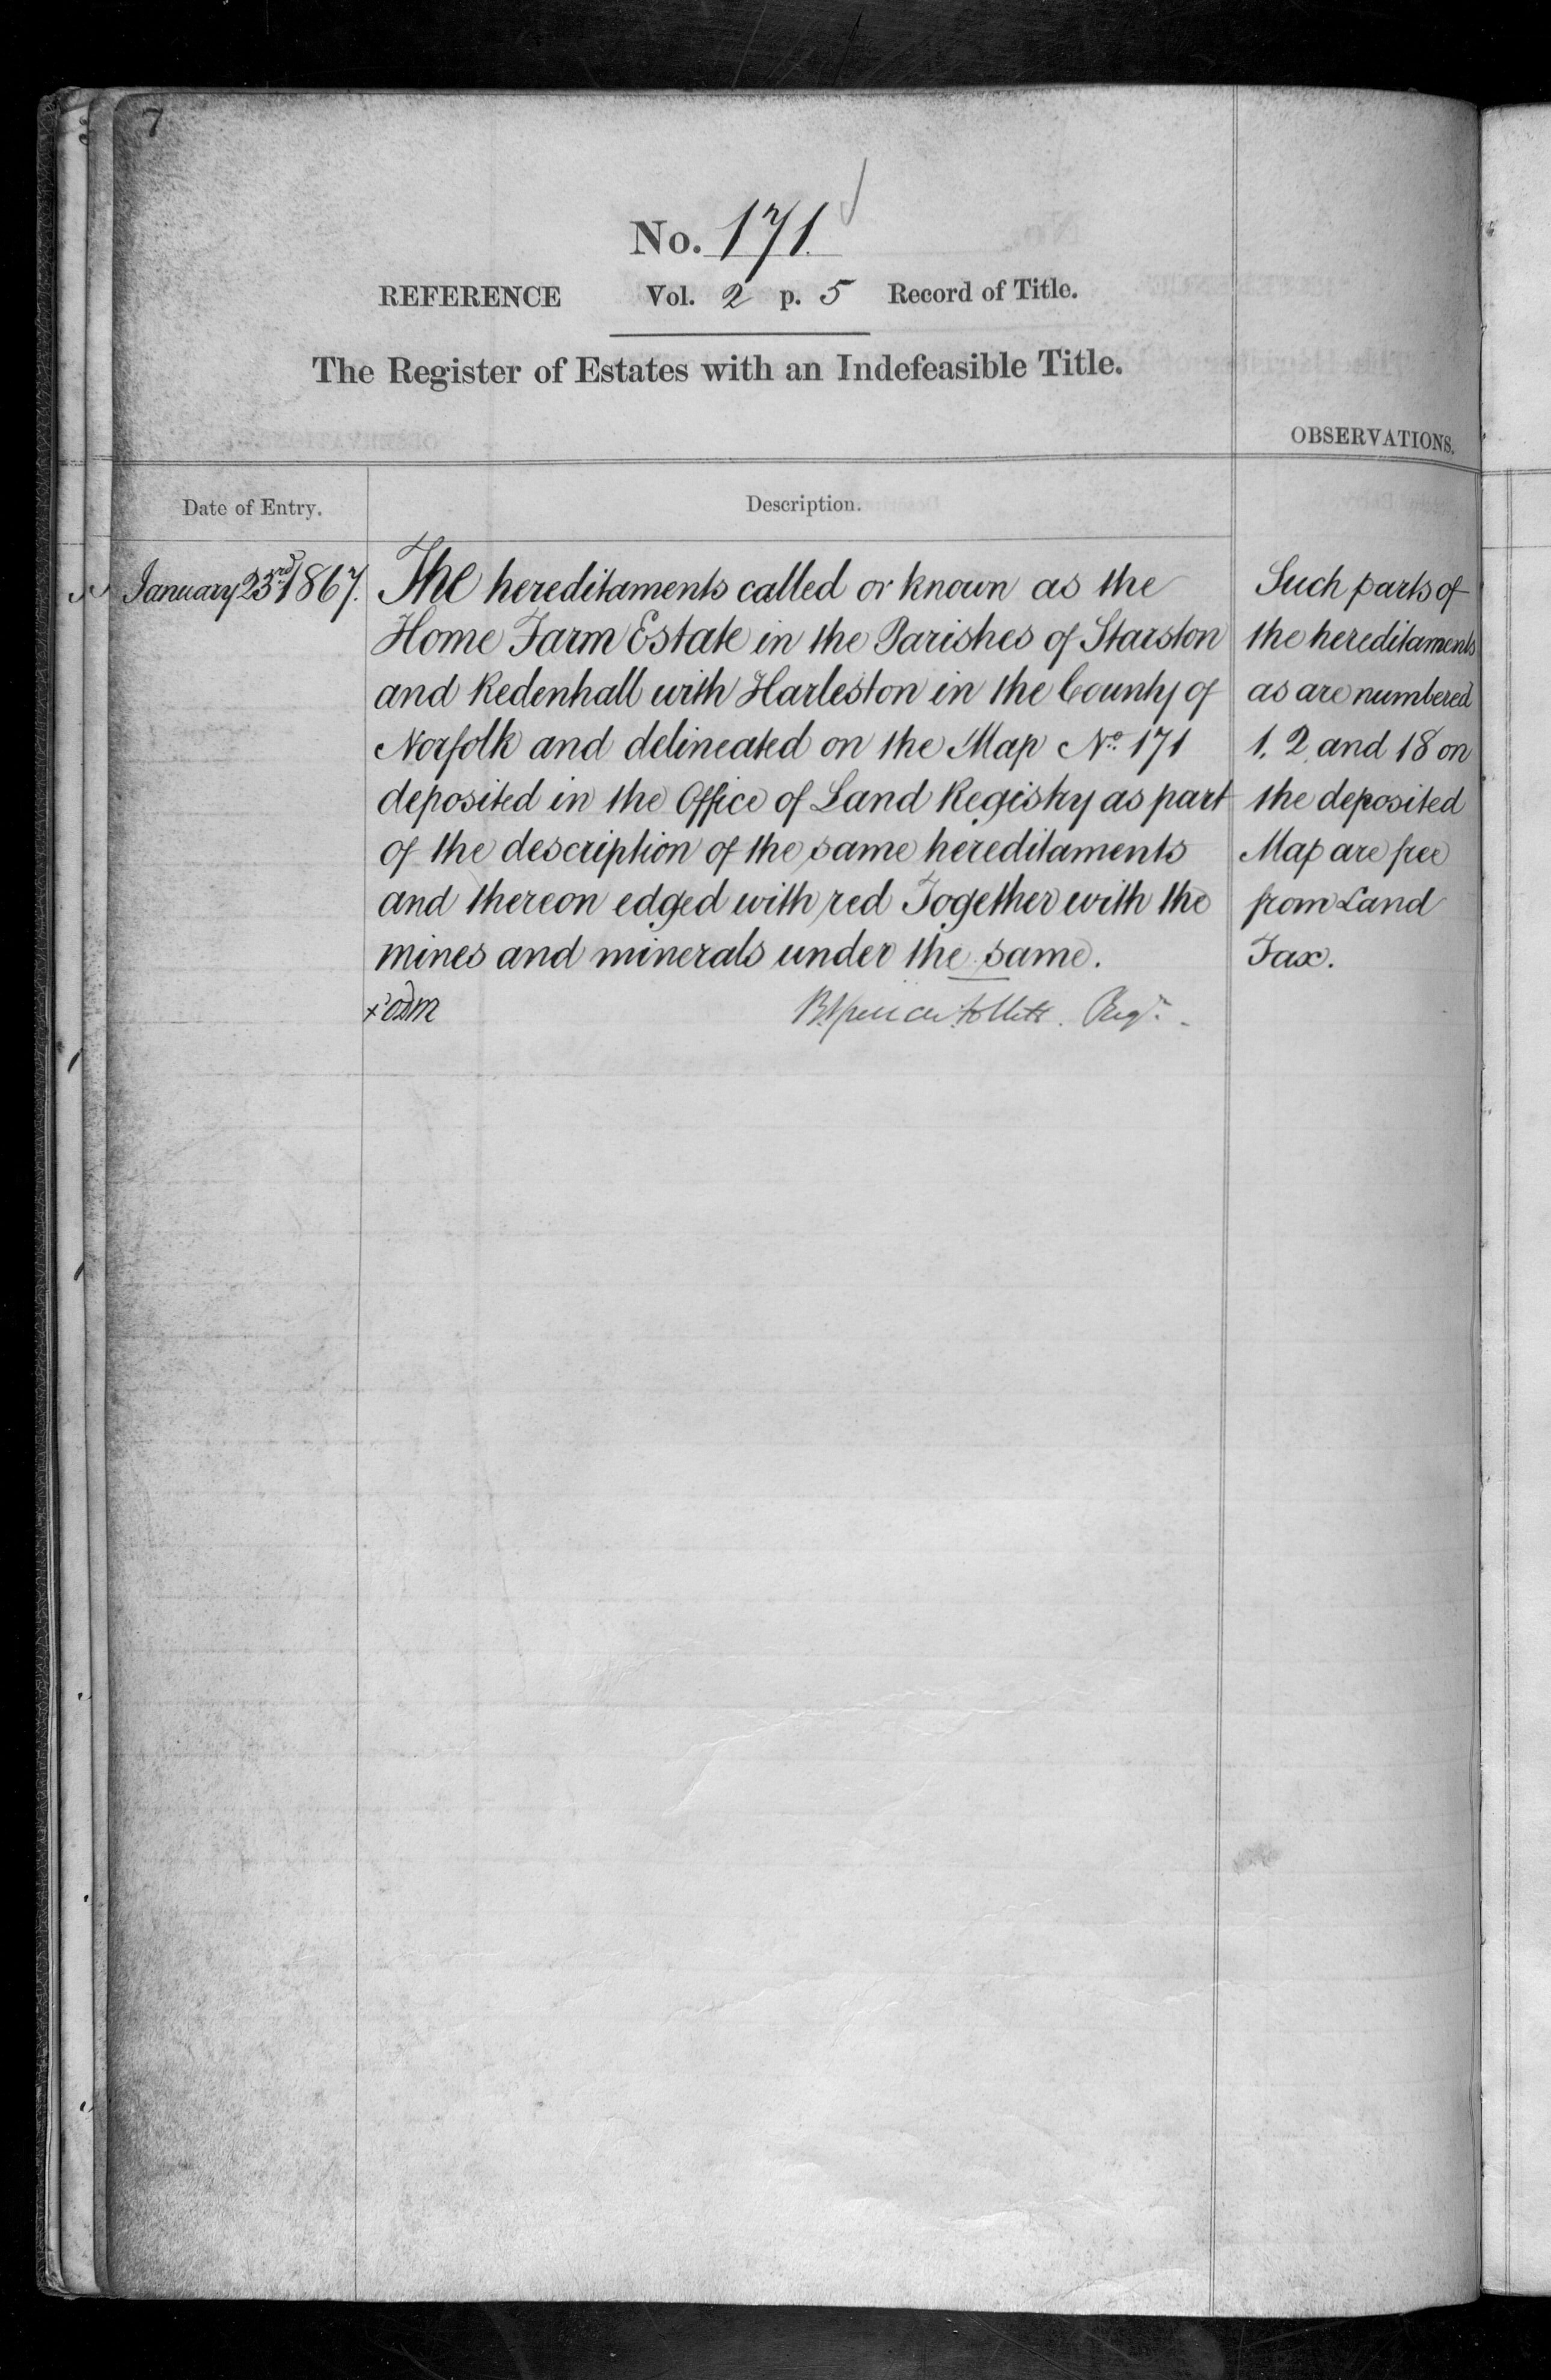 7
No. 171.
REFERENCE Vol. 2 p. 5 Record of Title.
The Register of Estates with an Indefeasible Title.
OBSERVATIONS.
Date of Entry.
Description.
January 23rd 1867.
The hereditaments called or known as the
Home Farm Estate in the Parishes of Starston
and Redenhall with Harleston in the County of
Norfolk and delineated on the Map No. 171
deposited in the Office of Land Registry as part
of the description of the same hereditaments
and thereon edged with red Together with the
mines and minerals under the same.
Regr.
Such parts of
the hereditaments
as are numbered
1. 2. and 18 on
the deposited
Map are free
from Land
Tax.